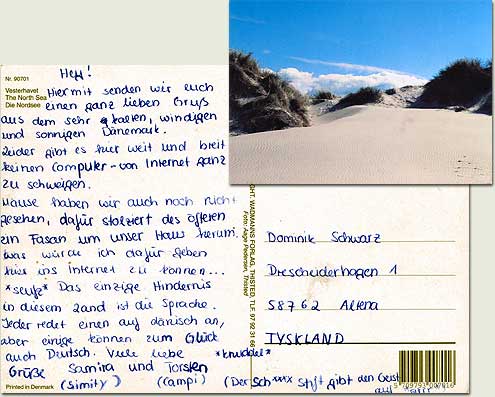 Nr. 90701
Vesterhavet
The North Sea
Die Nordsee
Hey!
Hiermit senden wir euch
einen ganz lieben Gruß
aus dem sehr warmen, windigen
und sonnigen Dänemark.
Leider gibt es hier weit und breit
keinen Computer - von Internet ganz
zu schweigen.
Mäuse haben wir auch noch nicht
gesehen, dafür stolziert des öfteren
ein Fasan um unser Haus herum.
Was würde ich dafür geben
hier ins Internet zu können...
*seufz* Das einzige Hindernis
in diesem Land ist die Sprache.
Jeder redet einen auf dänisch an,
aber einige können zum Glück
auch Deutsch. Viele liebe *knuddel*
Grüße Samira und Torsten
(Simity) (Campi) (Der Sch**** Stift gibt den Geist
auf
Printed in Denmark
WADMANNS FORLAG, THISTED, TLF. 97 92
Foto: Aage Pedersen, Thisted
Dominik Schwarz
Drescheiderhagen 1
58762 Altena
TYSKLAND